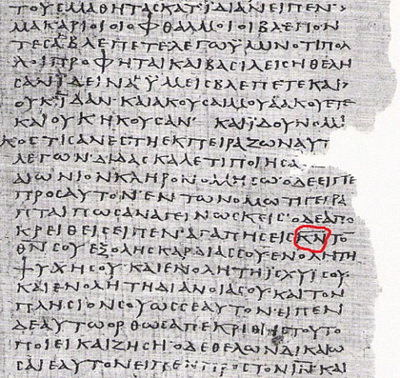 ΤΟΥϹΜΑΘΗΤΑϹΚΑΤΪΔΙΑΝΕΙΠΕΝ·
ΜΑΚΑΡΙΟΙΟΙΟΦΘΑΛΜΟΙΟΙΒΛΕΠΟΝ
ΤΕϹΑΒΛΕΠΕΤΕΛΕΓΩΫΜΙΝΟΤΙΠΟΛ
ΛΟΙΠΡΟΦΗΤΑΙΚΑΙΒΑϹΙΛΕΙϹΗΘΕΛΗ
ϹΑΝΪΔΕΙΝΑΫΜΕΙϹΒΛΕΠΕΤΕΚΑΙ
ΟΥΚΪΔΑΝ·ΚΑΙΑΚΟΥϹΑΙΜΟΥΑΑΚΟΥΕΤΕ
ΚΑΙΟΥΚΗΚΟΥϹΑΝ· ΚΑΙΪΔΟΥΝΟΜΙ
ΚΟϹΤΙϹΑΝΕϹΤΗΕΚΠΕΙΡΑΖΩΝΑΥΤ
ΛΕΓΩΝ·ΔΙΔΑϹΚΑΛΕΤΙΠΟΙΗϹΑ
ΔΙΩΝΙΟΝΚΛΗΡΟΝΟΜΗϹΩ·ΟΔΕΕΙΠΕ
ΠΡΟϹΑΥΤΟΝ·ΕΝΤΩΝΟΜΩΤΙΓΕΓΡΑ
ΠΤΑΙΠΩϹΑΝΑΓΕΙΝΩϹΚΕΙϹ·ΟΔΕΑΠΟ
ΚΡΕΙΘΕΙϹΕΙΠΕΝ·ΑΓΑΠΗϹΕΙϹΚΝΤΟ
ΘΝϹΟΥΕΞΟΛΗϹΚΑΡΔΙΑϹϹΟΥΕΝΟΛΗΤΗ
ΨΥΧΗϹΟΥΚΑΙΕΝΟΛΗΤΗΪϹΧΥΪϹΟΥ·
ΚΑΙΕΝΟΛΗΤΗΔΙΑΝΟΙΑϹΟΥΚΑΙΤΟΝ
ΠΛΗϹΙΟΝϹΟΥΩϹϹΕΑΥΤΟΝ·ΕΙΠΕΝ
ΔΕΑΥΤΩΟΡΘΩϹΑΠΕΚΡΙΘΗϹΤΟΥΤΟ
ΠΟΙΕΙΚΑΙΖΗϹΗ·ΟΔΕΘΕΛΩΝΔΙΚΑΙΩ
ϹΑΙΕΑΥΤΟΝΕΙΠΕΝΠΡΟϹΤΟΝΙΝΚΑΙ